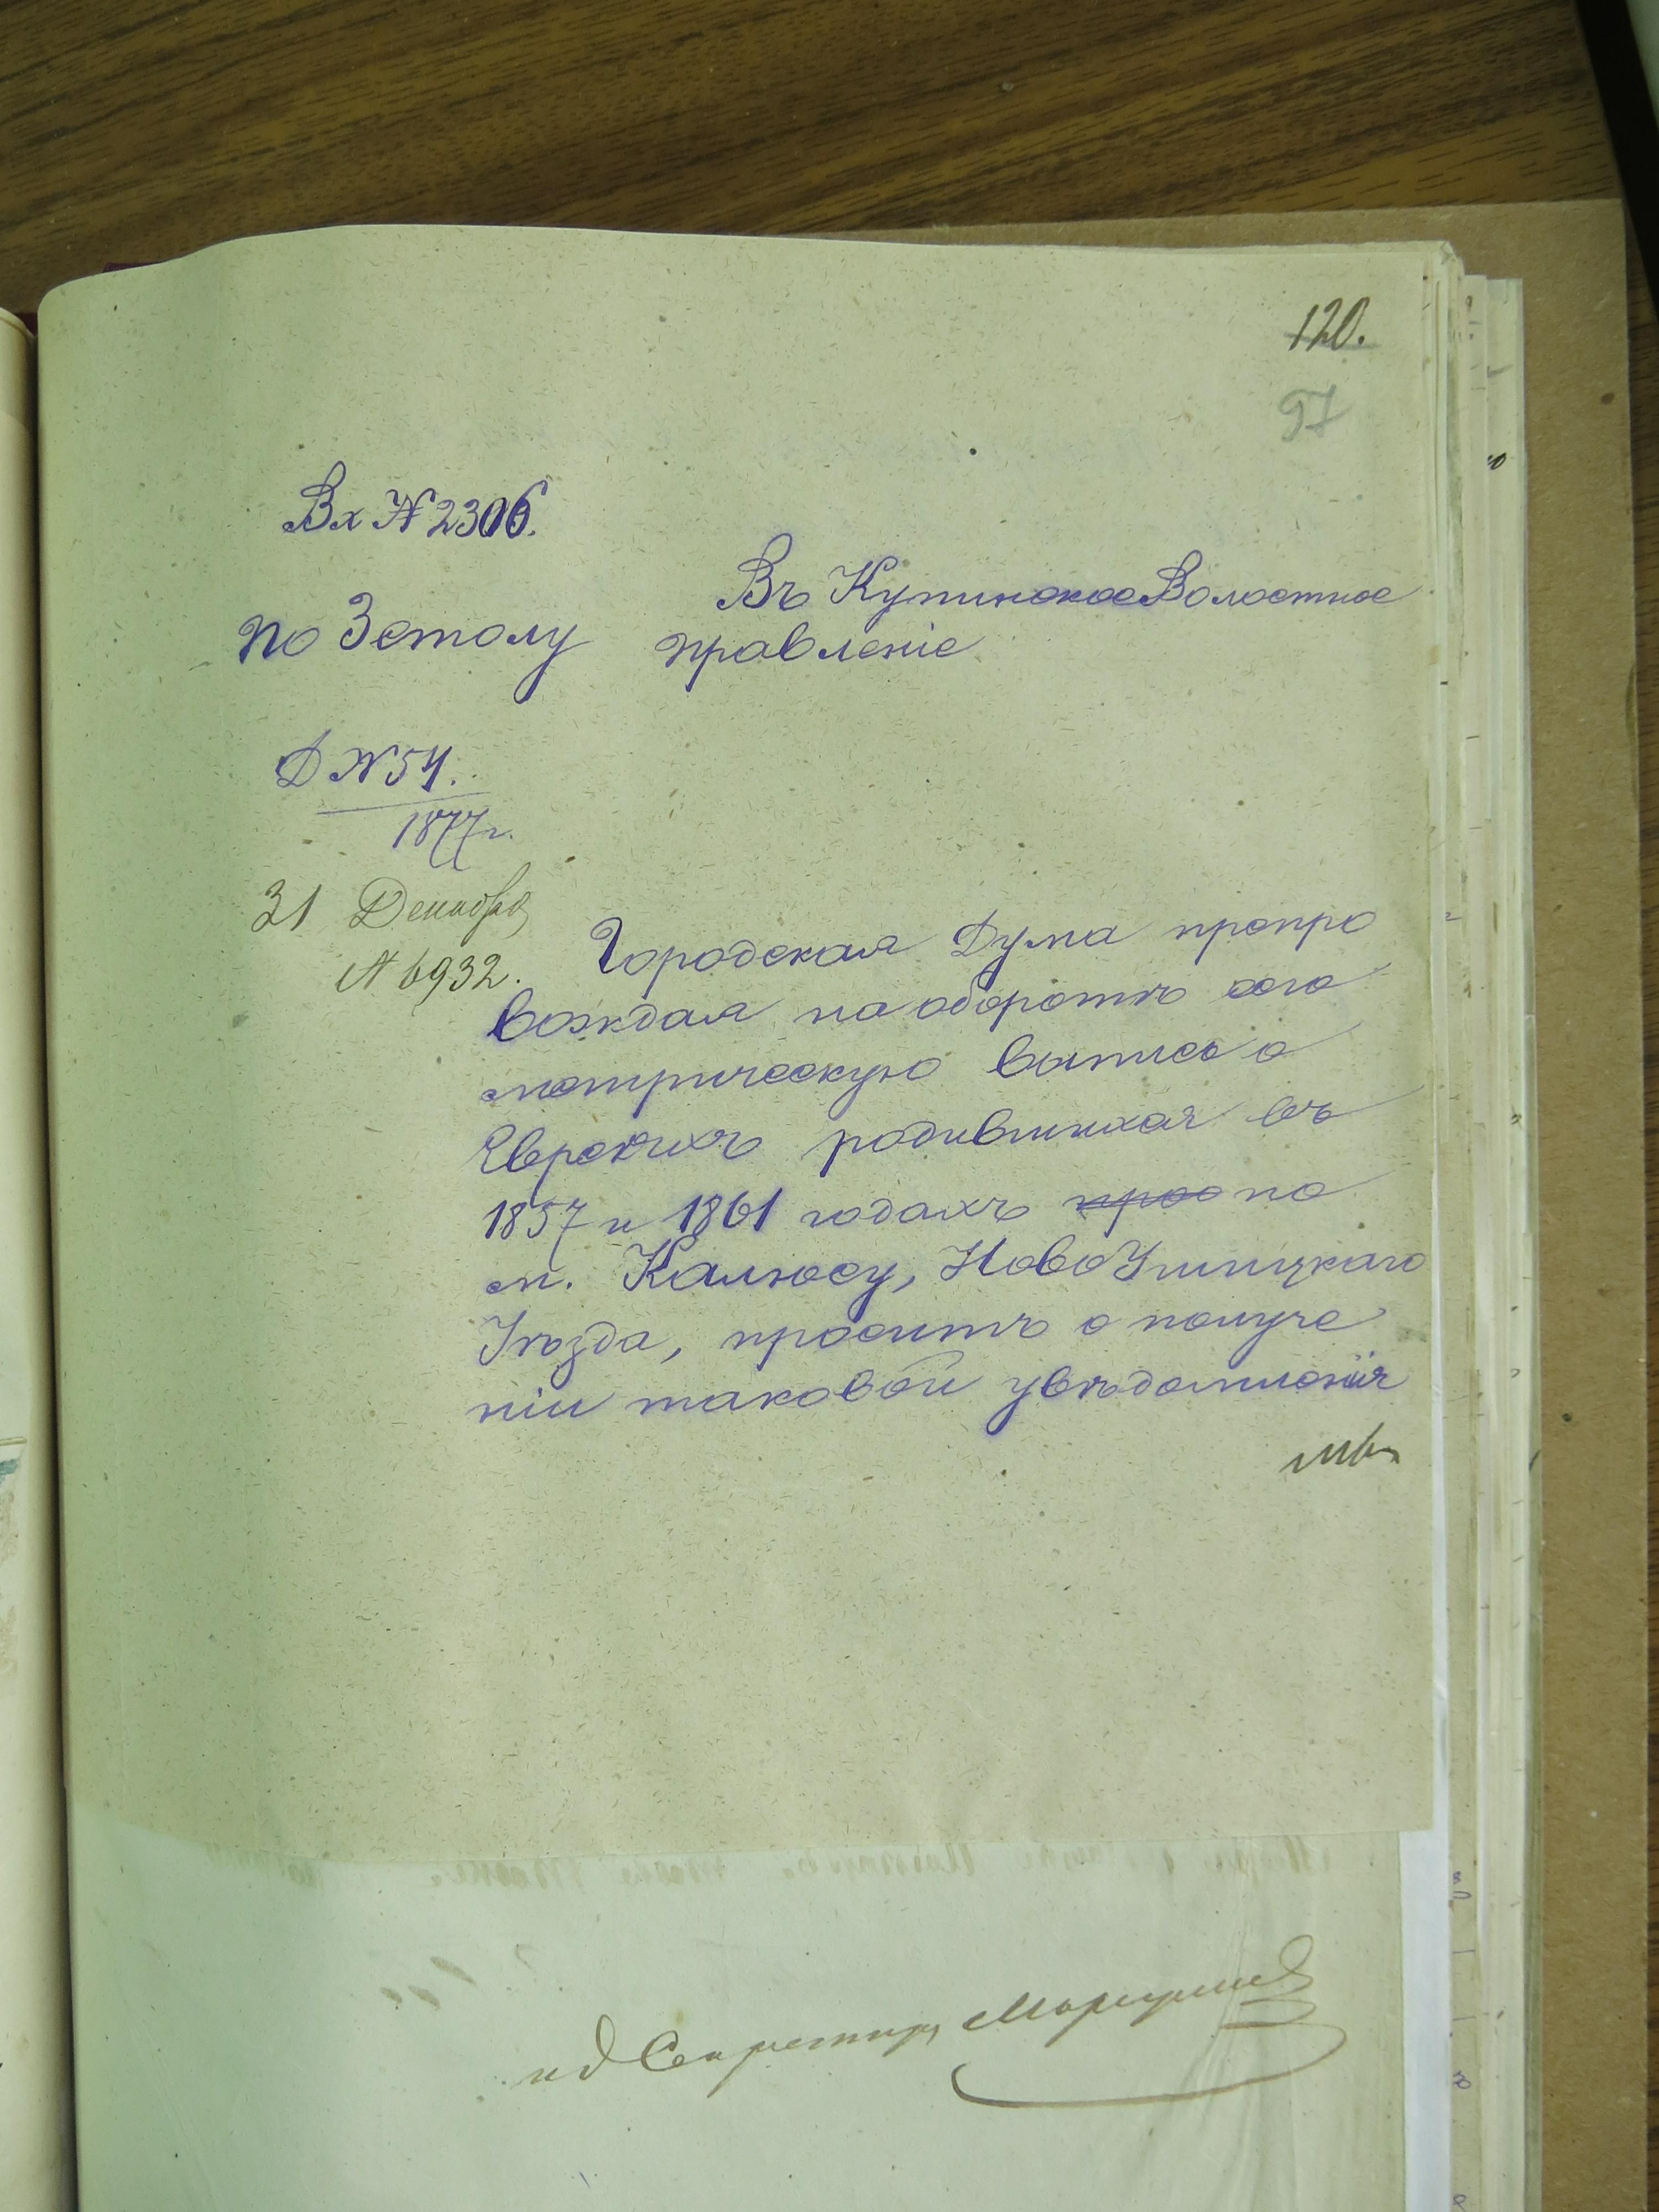 120.
97
Вх № 2306.
по 3 столу
Въ Купинское Волостное
правленіе
Д № 54.
1877 г.
31 Декабря
№ 6932.
Городская Дума препро
вождая на оборотѣ сего
метрическую выпись о
Евреяхъ родившихся въ
1857 и 1861 годахъ по
м. Калюсу, НовоУшицкаго
Уѣзда, проситъ о получе
ніи таковой увѣдомленія
ид Секретаря